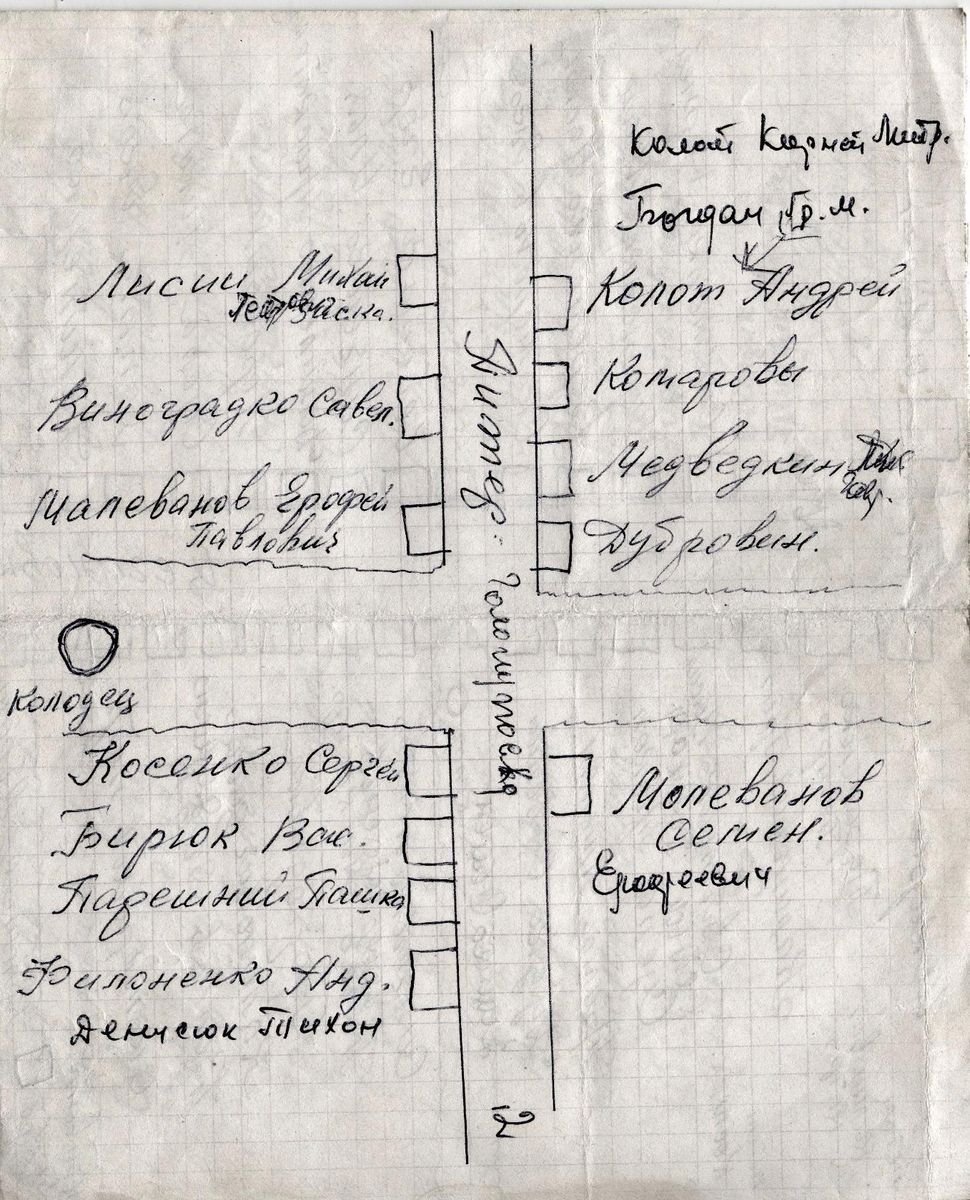 Колот Митр.
Богдан Гр. м.
Лисии Михаи
Васка.
Колот Андрей
Виноградко Савел.
Комаровы
Медведкин
Малеванов Ерофей
Павлович
Дубровин.
Питер:
Голопуповка
Колодец
Косенко Сергеи
Бирюк Вас.
Падешний Пашка
Филоненко Анд.
Денисюк Тихон
Молеванов
Семен.
Ерофеевич
2